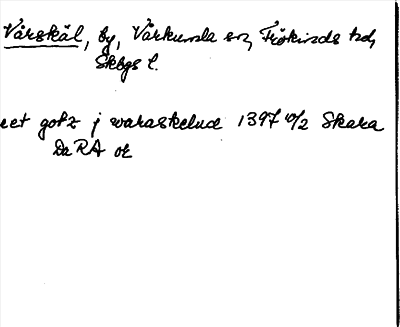 Vårskäl, by, Vårkumla sn, Frökinds hd,
Skbgs l.
eet gotz j waraskelud 1397 10/2 Skara
Da RA or